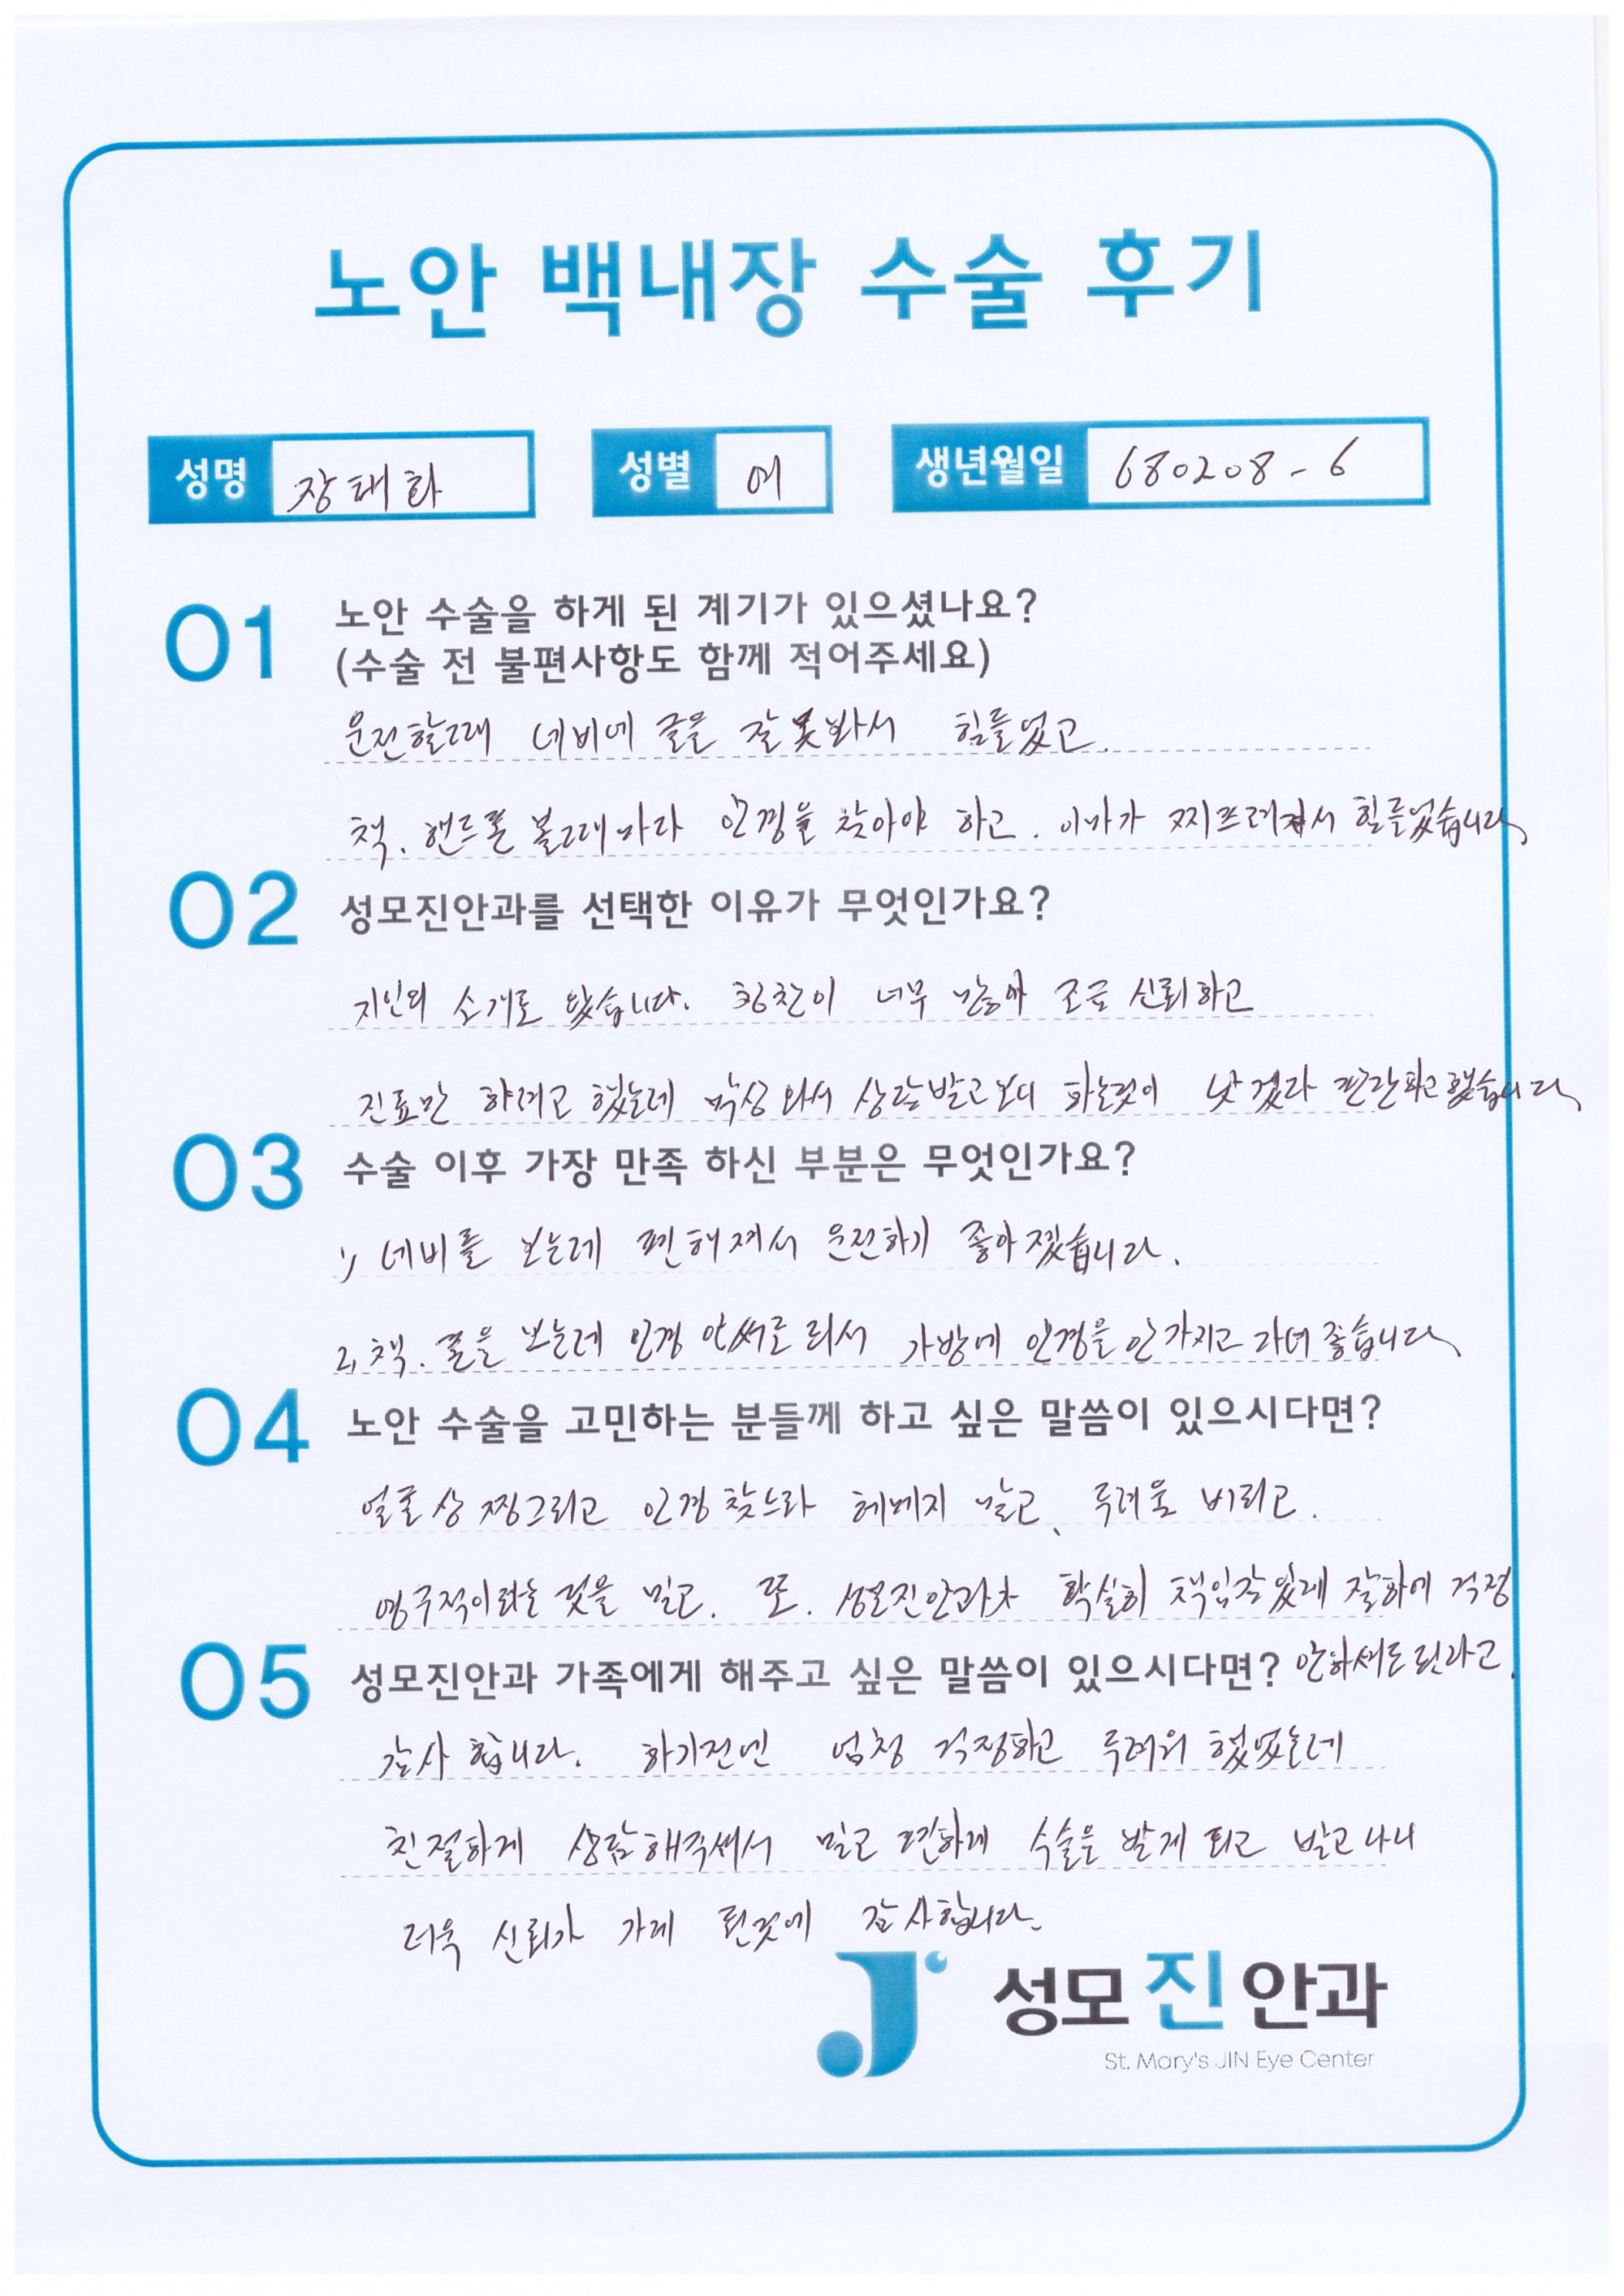 노안 백내장 수술 후기
성명 장태화 성별 여 생년월일 680208-6
01 노안 수술을 하게 된 계기가 있으셨나요?
(수술 전 불편사항도 함께 적어주세요)
운전할때 네비에 글을 잘 못봐서 힘들었고.
책. 핸드폰 볼때마다 안경을 찾아야 하고. 이마가 찌프려져서 힘들었습니다
02 성모진안과를 선택한 이유가 무엇인가요?
지인의 소개로 왔습니다. 칭찬이 너무 많아 조금 신뢰하고
진료만 하려고 했는데 막상 와서 상담받고보니 하는것이 낫겠다 판단하고 했습니다
03 수술 이후 가장 만족 하신 부분은 무엇인가요?
1, 네비를 보는데 편해져서 운전하기 좋아졌습니다.
2, 책. 폰을 보는데 안경 안써도 되서 가방에 안경을 안가지고 다녀 좋습니다
04 노안 수술을 고민하는 분들께 하고 싶은 말씀이 있으시다면?
얼굴상 찡그리고 안경 찾느라 헤메지 말고, 두려움 버리고.
영구적이라는 것을 믿고. 또. 성모진안과가 확실히 책임감있게 잘하에 걱정
안하셔도 된라고.
05 성모진안과 가족에게 해주고 싶은 말씀이 있으시다면?
감사 합니다. 하기전엔 엄청 걱정하고 두려워 했었는데
친절하게 상담해주셔서 믿고 편하게 수술을 받게 되고 받고나니
더욱 신뢰가 가게 된것에 감사합니다.
성모진안과
St. Mary's JIN Eye Center